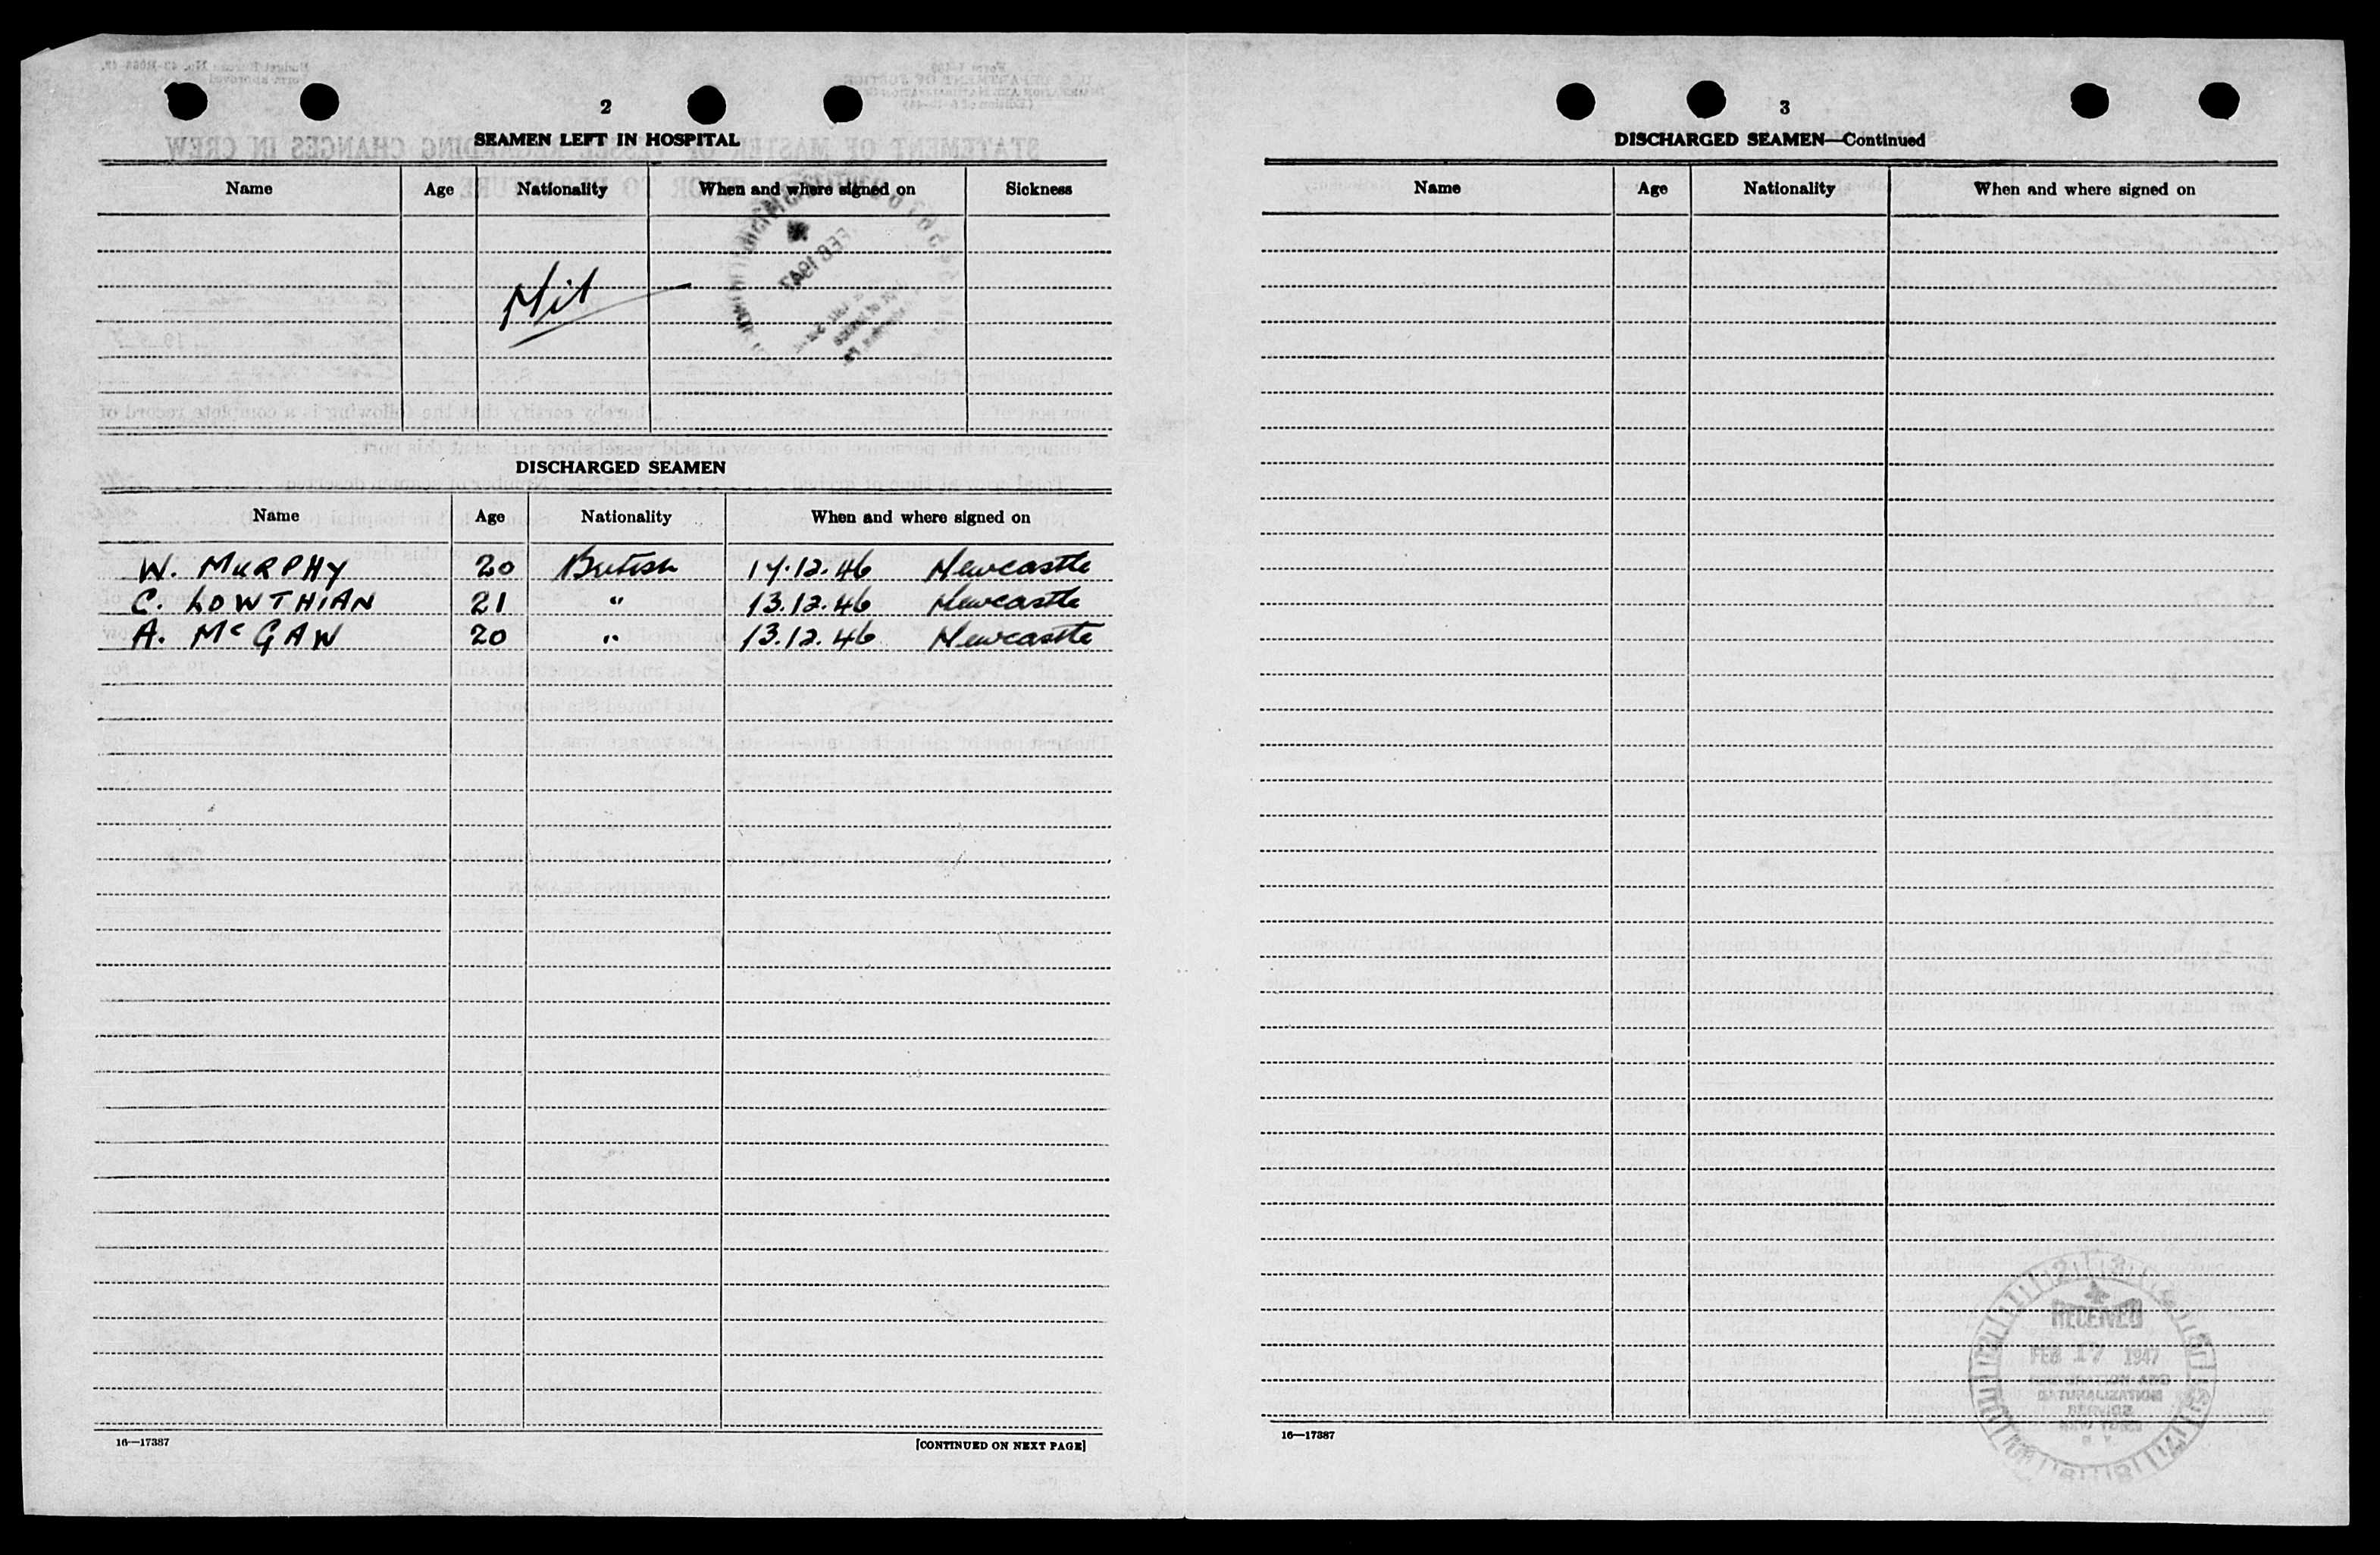 2
SEAMEN LEFT IN HOSPITAL
Name Age Nationality When and where signed on Sickness
Nil
DISCHARGED SEAMEN
Name Age Nationality When and where signed on
W. MURPHY 20 British 17.12.46 Newcastle
C. LOWTHIAN 21 " 13.12.46 Newcastle
A. McGAW 20 " 13.12.46 Newcastle
16—17387 [CONTINUED ON NEXT PAGE]
3
DISCHARGED SEAMEN—Continued
Name Age Nationality When and where signed on
RECEIVED
FEB 17 1947
IMMIGRATION AND
NATURALIZATION
SERVICE
NEW YORK
N Y
16—17387